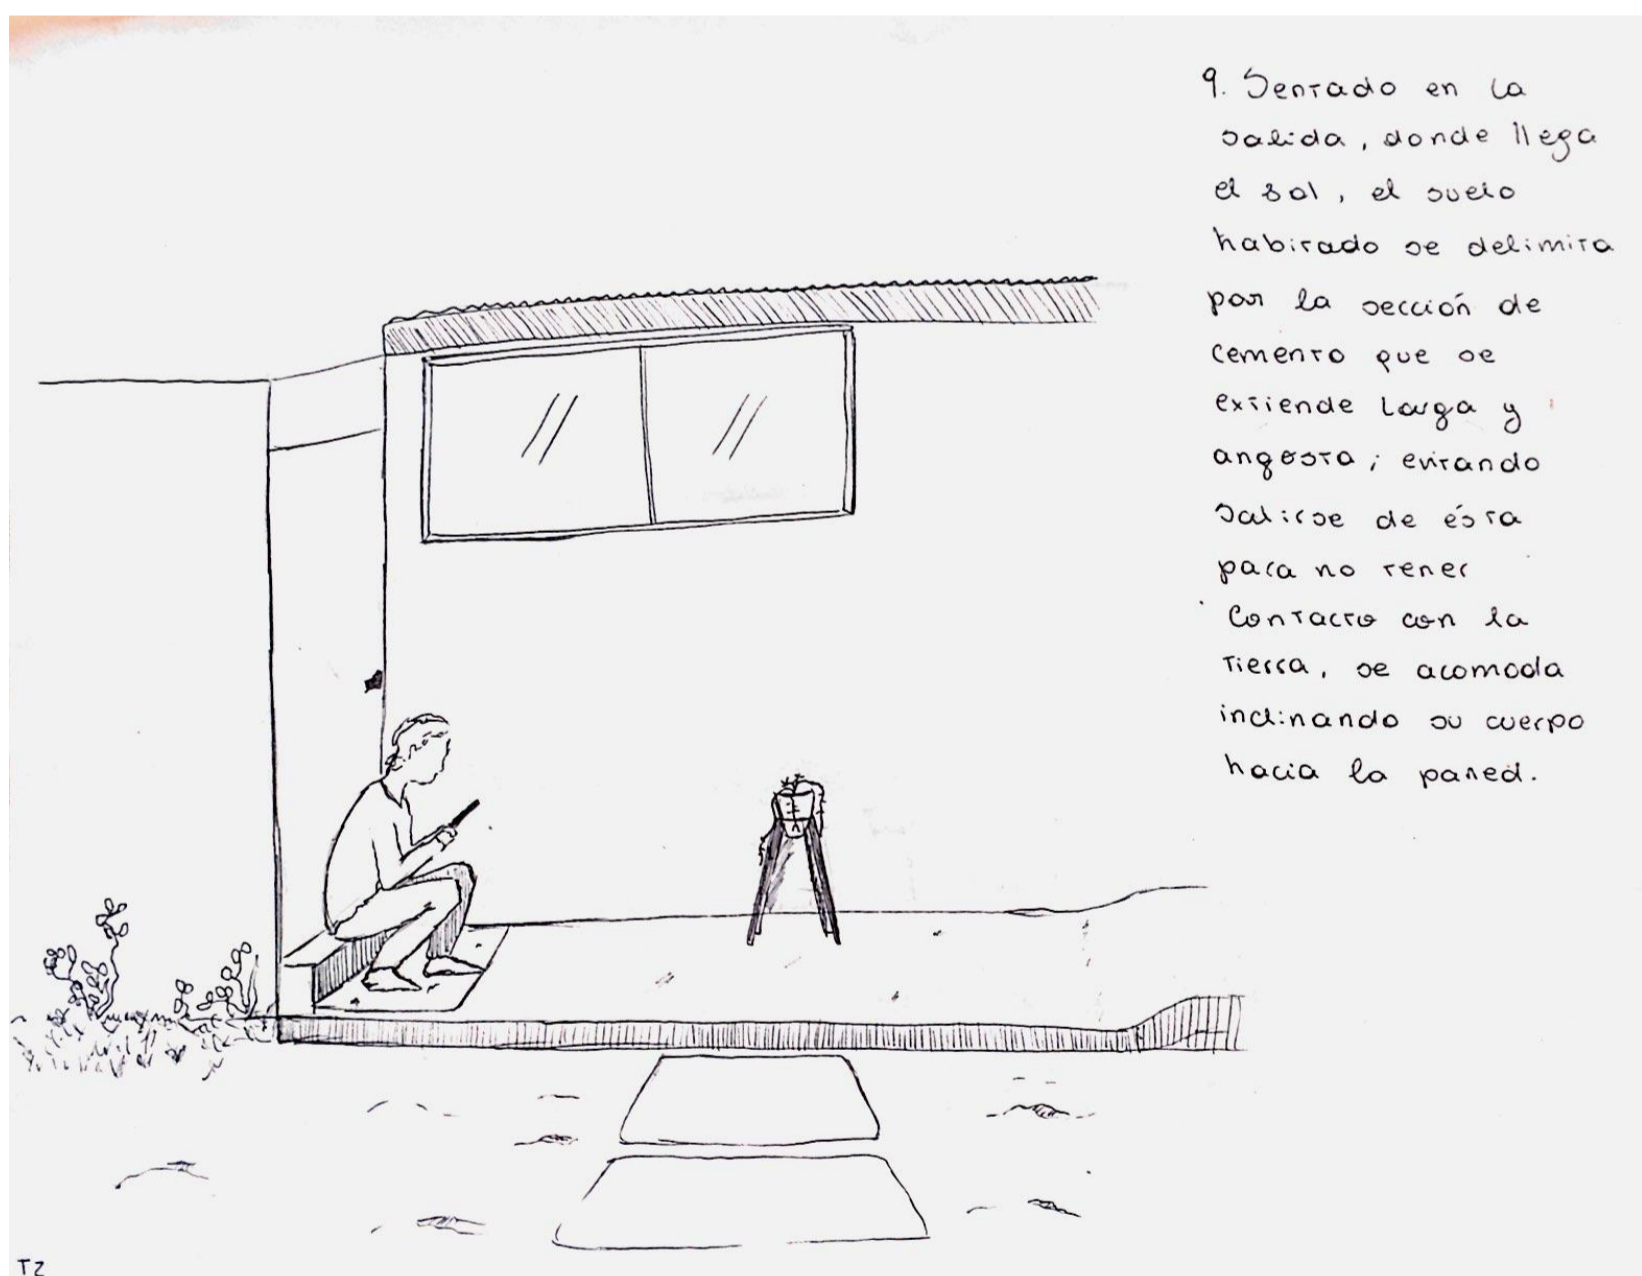 9. Sentado en la
salida, donde llega
el sol, el suelo
habitado se delimita
por la sección de
cemento que se
extiende larga y
angosta; evitando
salirse de ésta
para no tener
contacto con la
tierra, se acomoda
inclinando su cuerpo
hacia la pared.
T2